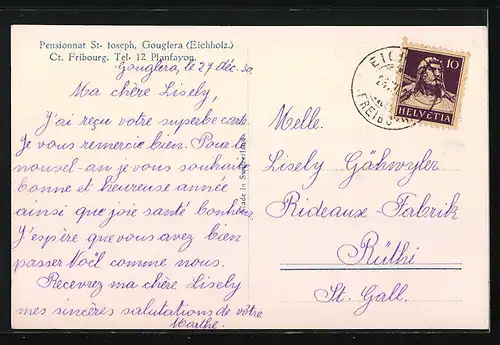 Pensionnat St. Joseph, Gouglera (Eichholz.)
Ct. Fribourg. Tél. 12 Planfayon.
Gouglera, le 27 déc. 30.
Ma chère Lisely,
J'ai reçu votre superbe carte.
Je vous remercie bien. Pour le
nouvel-an je vous souhaite
bonne et heureuse année
ainsi que joie santé bonheur.
J'espère que vous avez bien
passer Noël comme nous.
Recevrez ma chère Lisely
mes sincères salutations de vôtre
Marthe.
Made in Switzerland
10
HELVETIA
Melle.
Lisely Gähwyler
Rideaux-Fabrik
Rüthi
St. Gall.